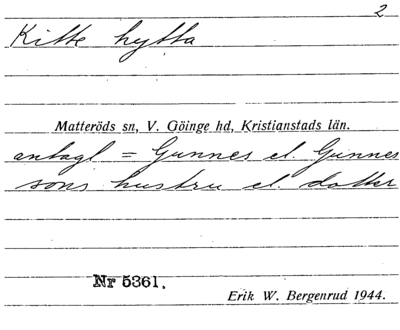 2
Kitte hytta
Matteröds sn, V. Göinge hd, Kristianstads län.
antagl = Gunnes el. Gunnes
sons hustru el. dotter
Nr 5361.
Erik W. Bergenrud 1944.